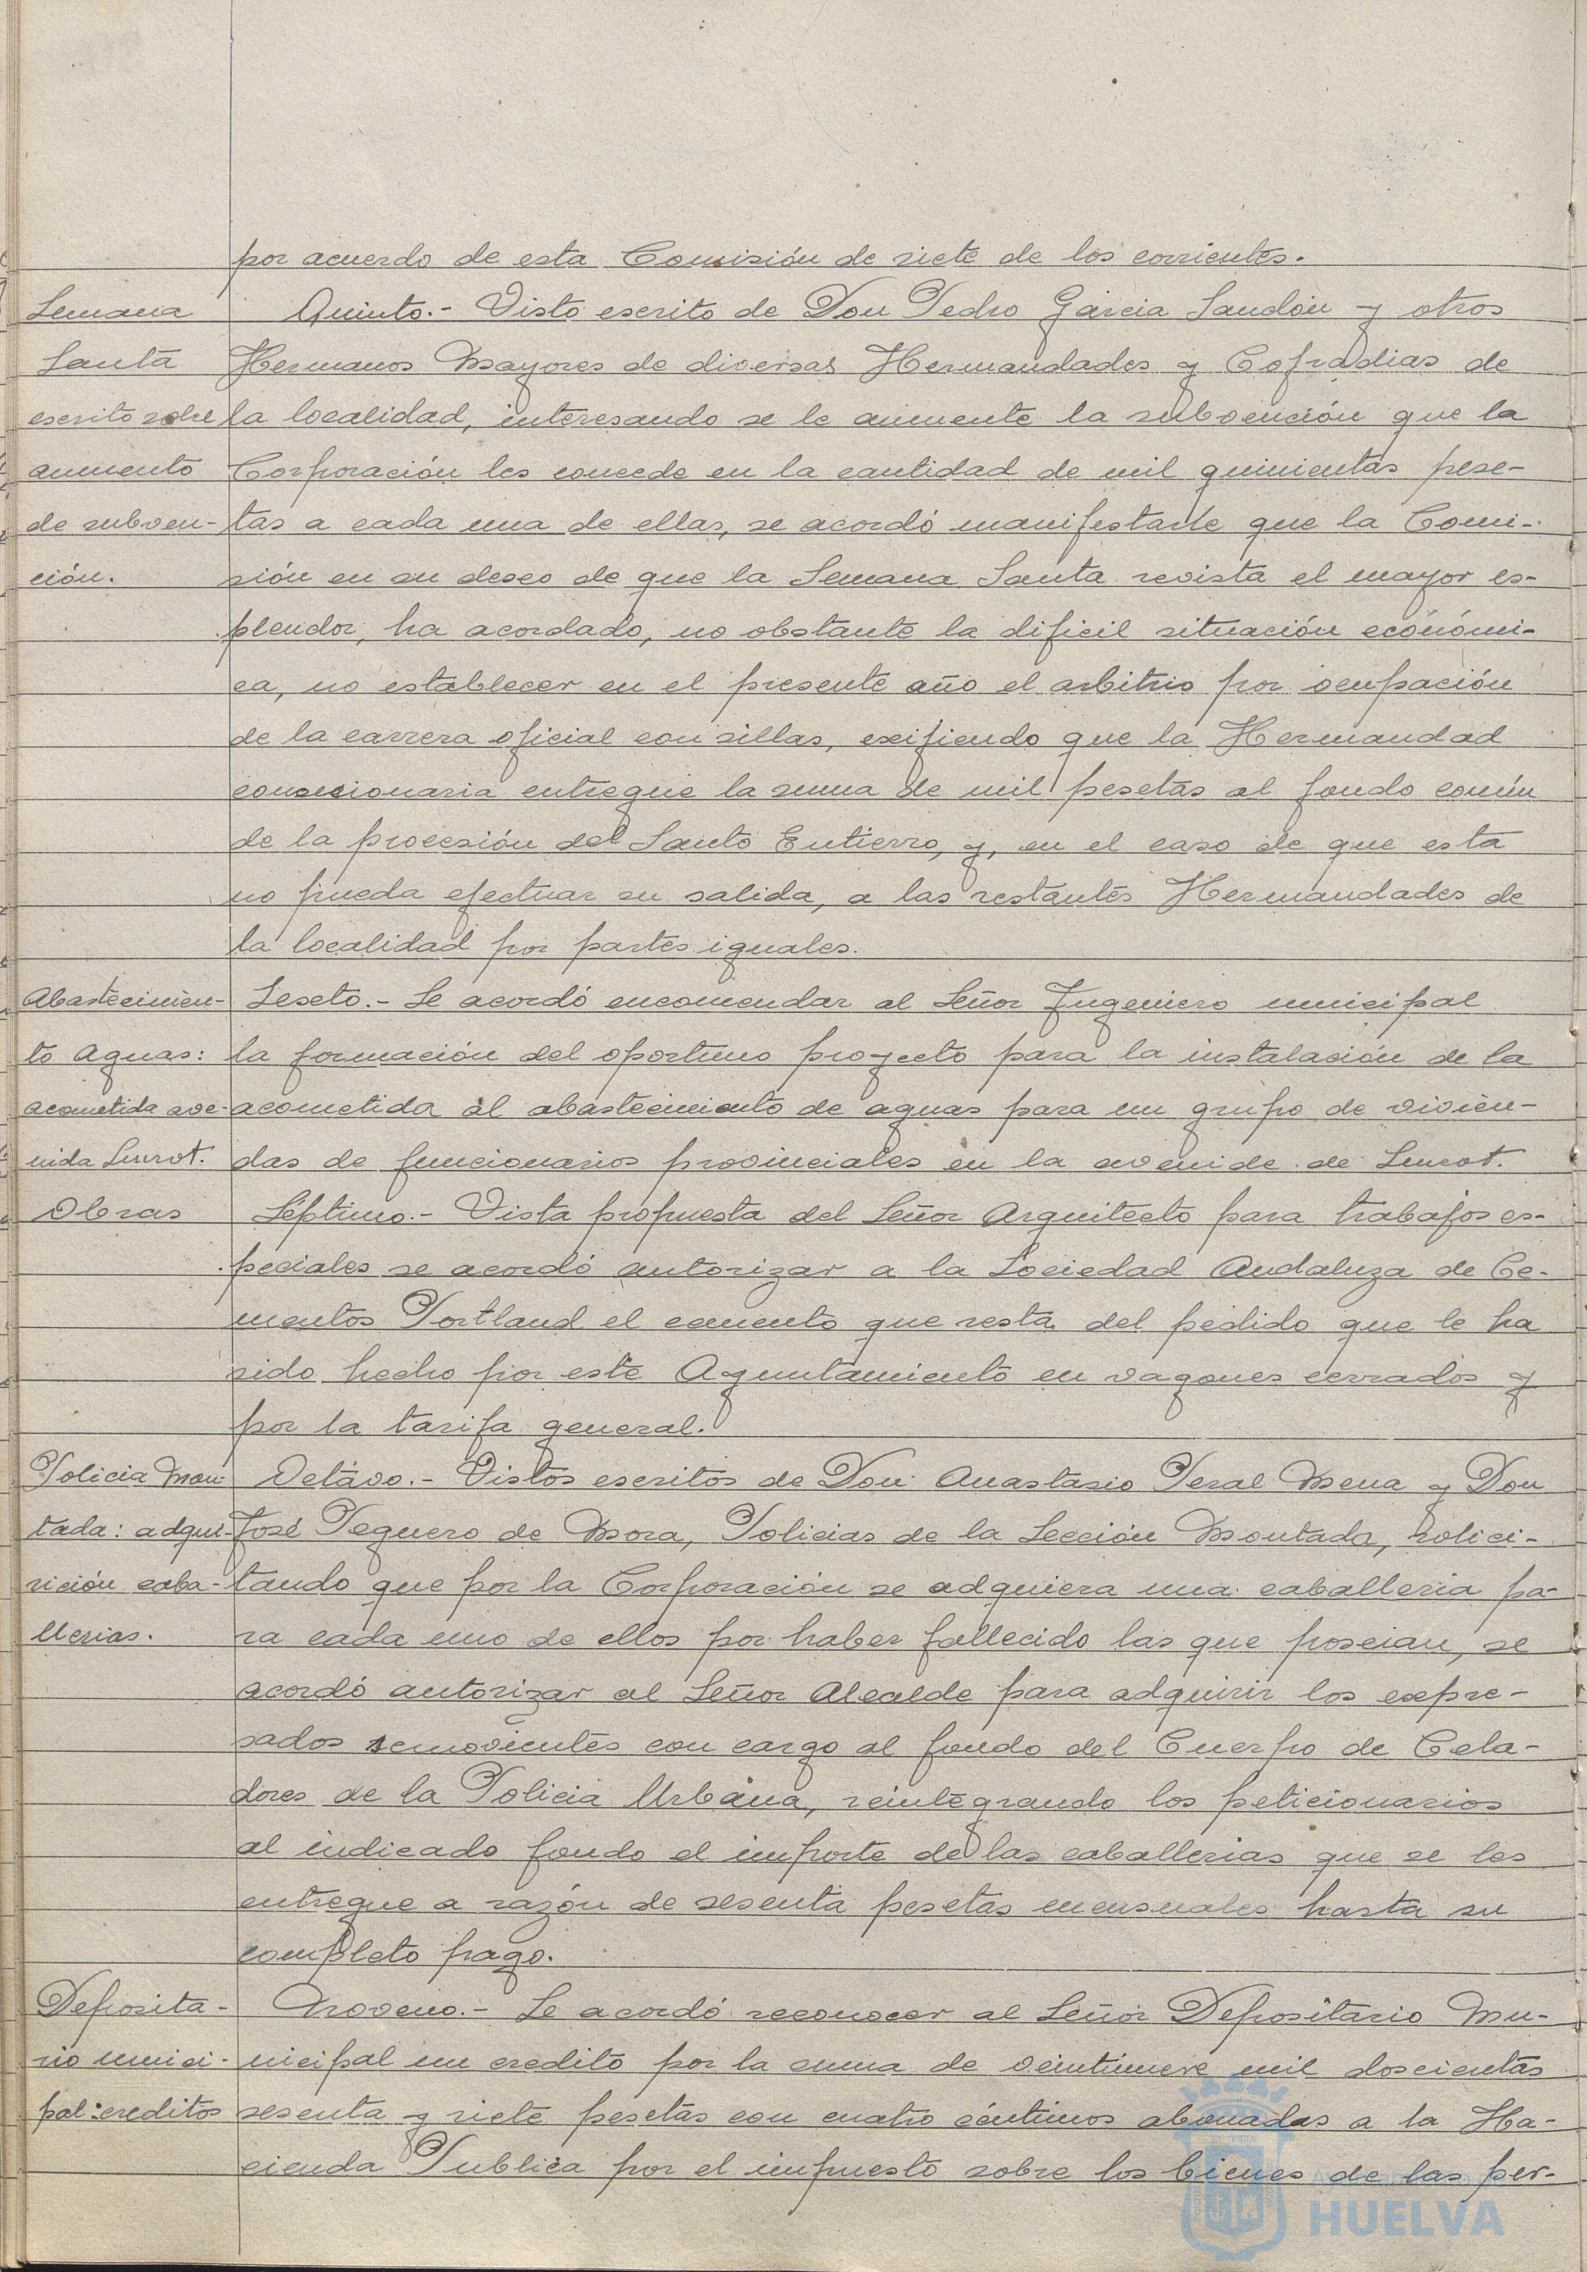 por acuerdo de esta Comisión de siete de los corrientes.
Semana
Santa
escrito sobre
aumento
de subven-
ción.
Quinto.- Visto escrito de Don Pedro Garcia Sandón y otros
Hermanos Mayores de diversas Hermandades y Cofradias de
la localidad, interesando se le aumente la subvención que la
Corporación les concede en la cantidad de mil quinientas pese-
tas a cada una de ellas, se acordó manifestarle que la Comi-
sión en su deseo de que la Semana Santa revista el mayor es-
plendor, ha acordado, no obstante la dificil situación económi-
ca, no establecer en el presente año el arbitrio por ocupación
de la carrera oficial con sillas, exigiendo que la Hermandad
concesionaria entregue la suma de mil pesetas al fondo común
de la procesión del Santo Entierro, y, en el caso de que esta
no pueda efectuar su salida, a las restantes Hermandades de
la localidad por partes iguales.
Abastecimien-
to Aguas:
acometida ave-
nida
Sexto.- Se acordó encomendar al Señor Ingeniero municipal
la formación del oportuno proyecto para la instalación de la
acometida al abastecimiento de aguas para un grupo de vivien-
das de funcionarios provinciales en la avenida de
Obras
Séptimo.- Vista propuesta del Señor Arquitecto para trabajos es-
peciales se acordó autorizar a la Sociedad Andaluza de Ce-
mentos Portland el cemento que resta del pedido que le ha
sido hecho por este Ayuntamiento en vagones cerrados y
por la tarifa general.
Policia Mon-
tada: adqui-
sición caba-
llerias.
Octavo.- Vistos escritos de Don Anastasio Peral Mena y Don
José Peguero de Mora, Policias de la Sección Montada, solici-
tando que por la Corporación se adquiera una caballeria pa-
ra cada uno de ellos por haber fallecido las que poseian, se
acordó autorizar al Señor Alcalde para adquirir los expre-
sados semovientes con cargo al fondo del Cuerpo de Cela-
dores de la Policia Urbana, reintegrando los peticionarios
al indicado fondo el importe de las caballerias que se les
entregue a razón de sesenta pesetas mensuales hasta su
completo pago.
Deposita-
rio munici-
pal: creditos
Noveno.- Se acordó reconocer al Señor Depositario Mu-
nicipal un credito por la suma de veintinueve mil doscientas
sesenta y siete pesetas con cuatro céntimos abonadas a la Ha-
cienda Publica por el impuesto sobre los bienes de las per-
Ayuntamiento de
HUELVA